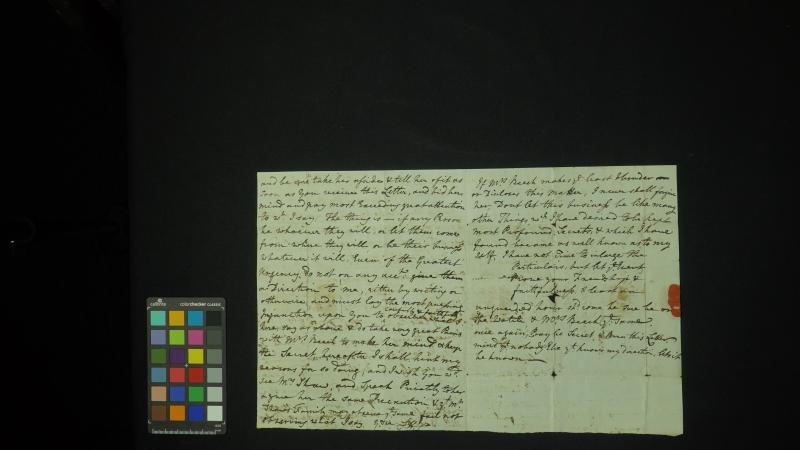 and be sure take her aside & tell her of it as
soon as you receive this Letter, and bid her
mind and pay most Exceeding great attention
to wt. I say. The thing is — if any Person
be whoever they will, or let them come
from where they will or be their business
whatever it will, Even of the Greatest
Urgency, do not on any acct. give them
a Direction to me, either by writing or
otherwise, and must lay the most pressing
Injunction upon you to observe
say at home & do take very great Pains
with Mrs. Beech to make her mind & keep
the Secret, hereafter I shall hint my
reasons for so doing, and I wish you wd.
see Mrs. Shaw, and Speak Privately to her
& give her the same Precaution & yt. Mrs.
Shaws Family may observe ye. Same fail not
observing what I say
If Mrs. Beech makes ye. least blunder
or Discloses this matter, I never shall forgive
her. Dont let this business be like many
other Things, wch. I have desired to be kept
most Profound Secrets, & which I have
found became as well known as to my
self. I have not Time to enlarge the
Particulars, but let ye. Event
prove your Friendship &
faithfulness, & least in
unguarded hour it come be sure be on
the Watch & Mrs. Beech ye. Same
once again, Pray be Secret & Burn this Letter
mind yt. nobody Else yt. knows my direction, lets it
be known
calibrite
colorchecker CLASSIC